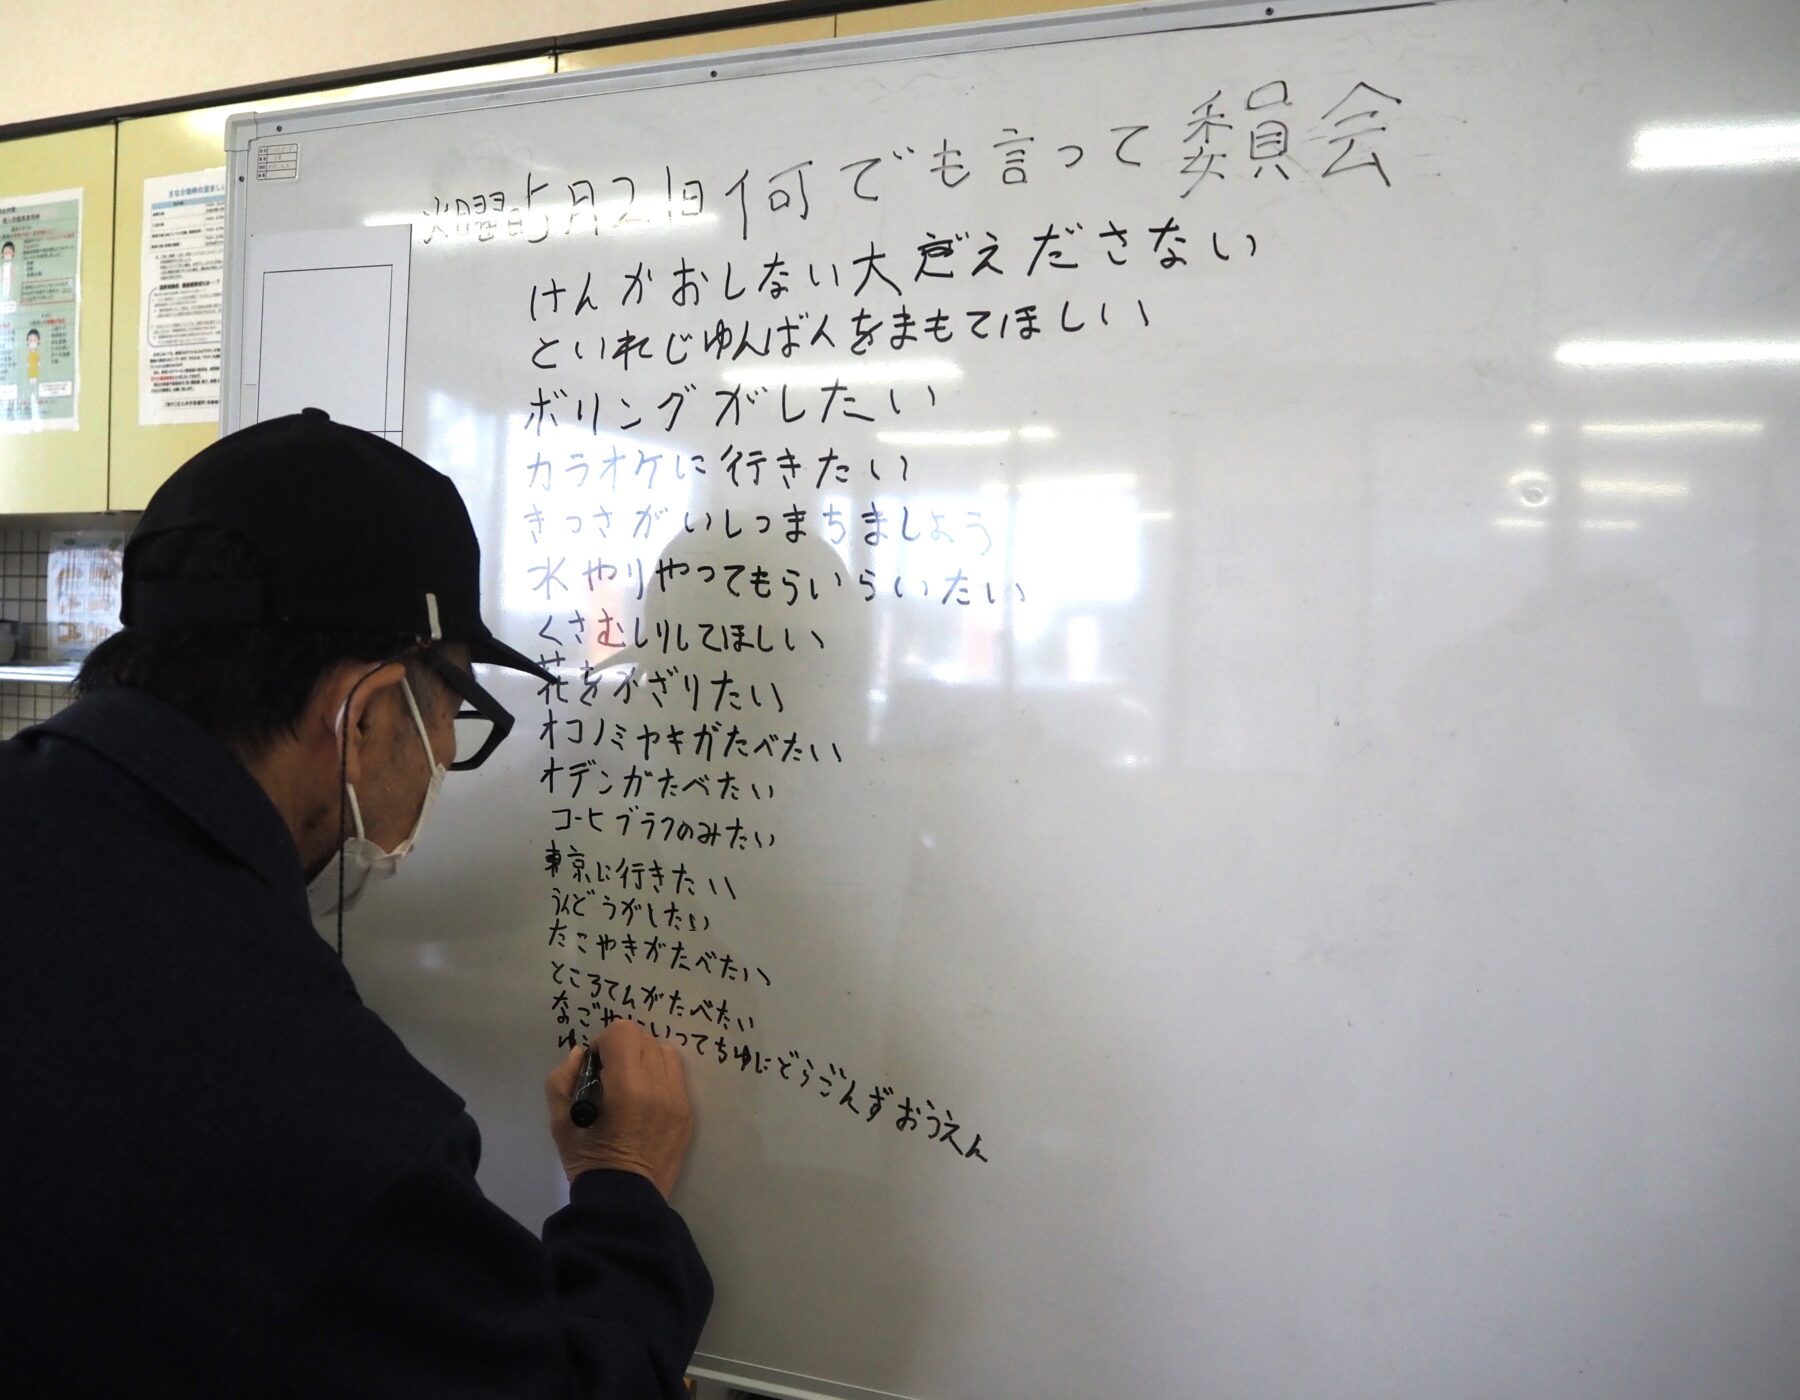 火曜日5月21日何でも言って委員会
けんかおしない大声えださない
といれじゅんばんをまもてほしい
ボリングがしたい
カラオケに行きたい
きっさがいしつまちましょう
水やりやってもらいらいたい
くさむしりしてほしい
花をかざりたい
オコノミヤキがたべたい
オデンがたべたい
コーヒブラフのみたい
東京に行きたい
うんどうがしたい
たこやきがたべたい
ところてんがたべたい
なごやにいってちゆにどらごんずおうえん
ゆう